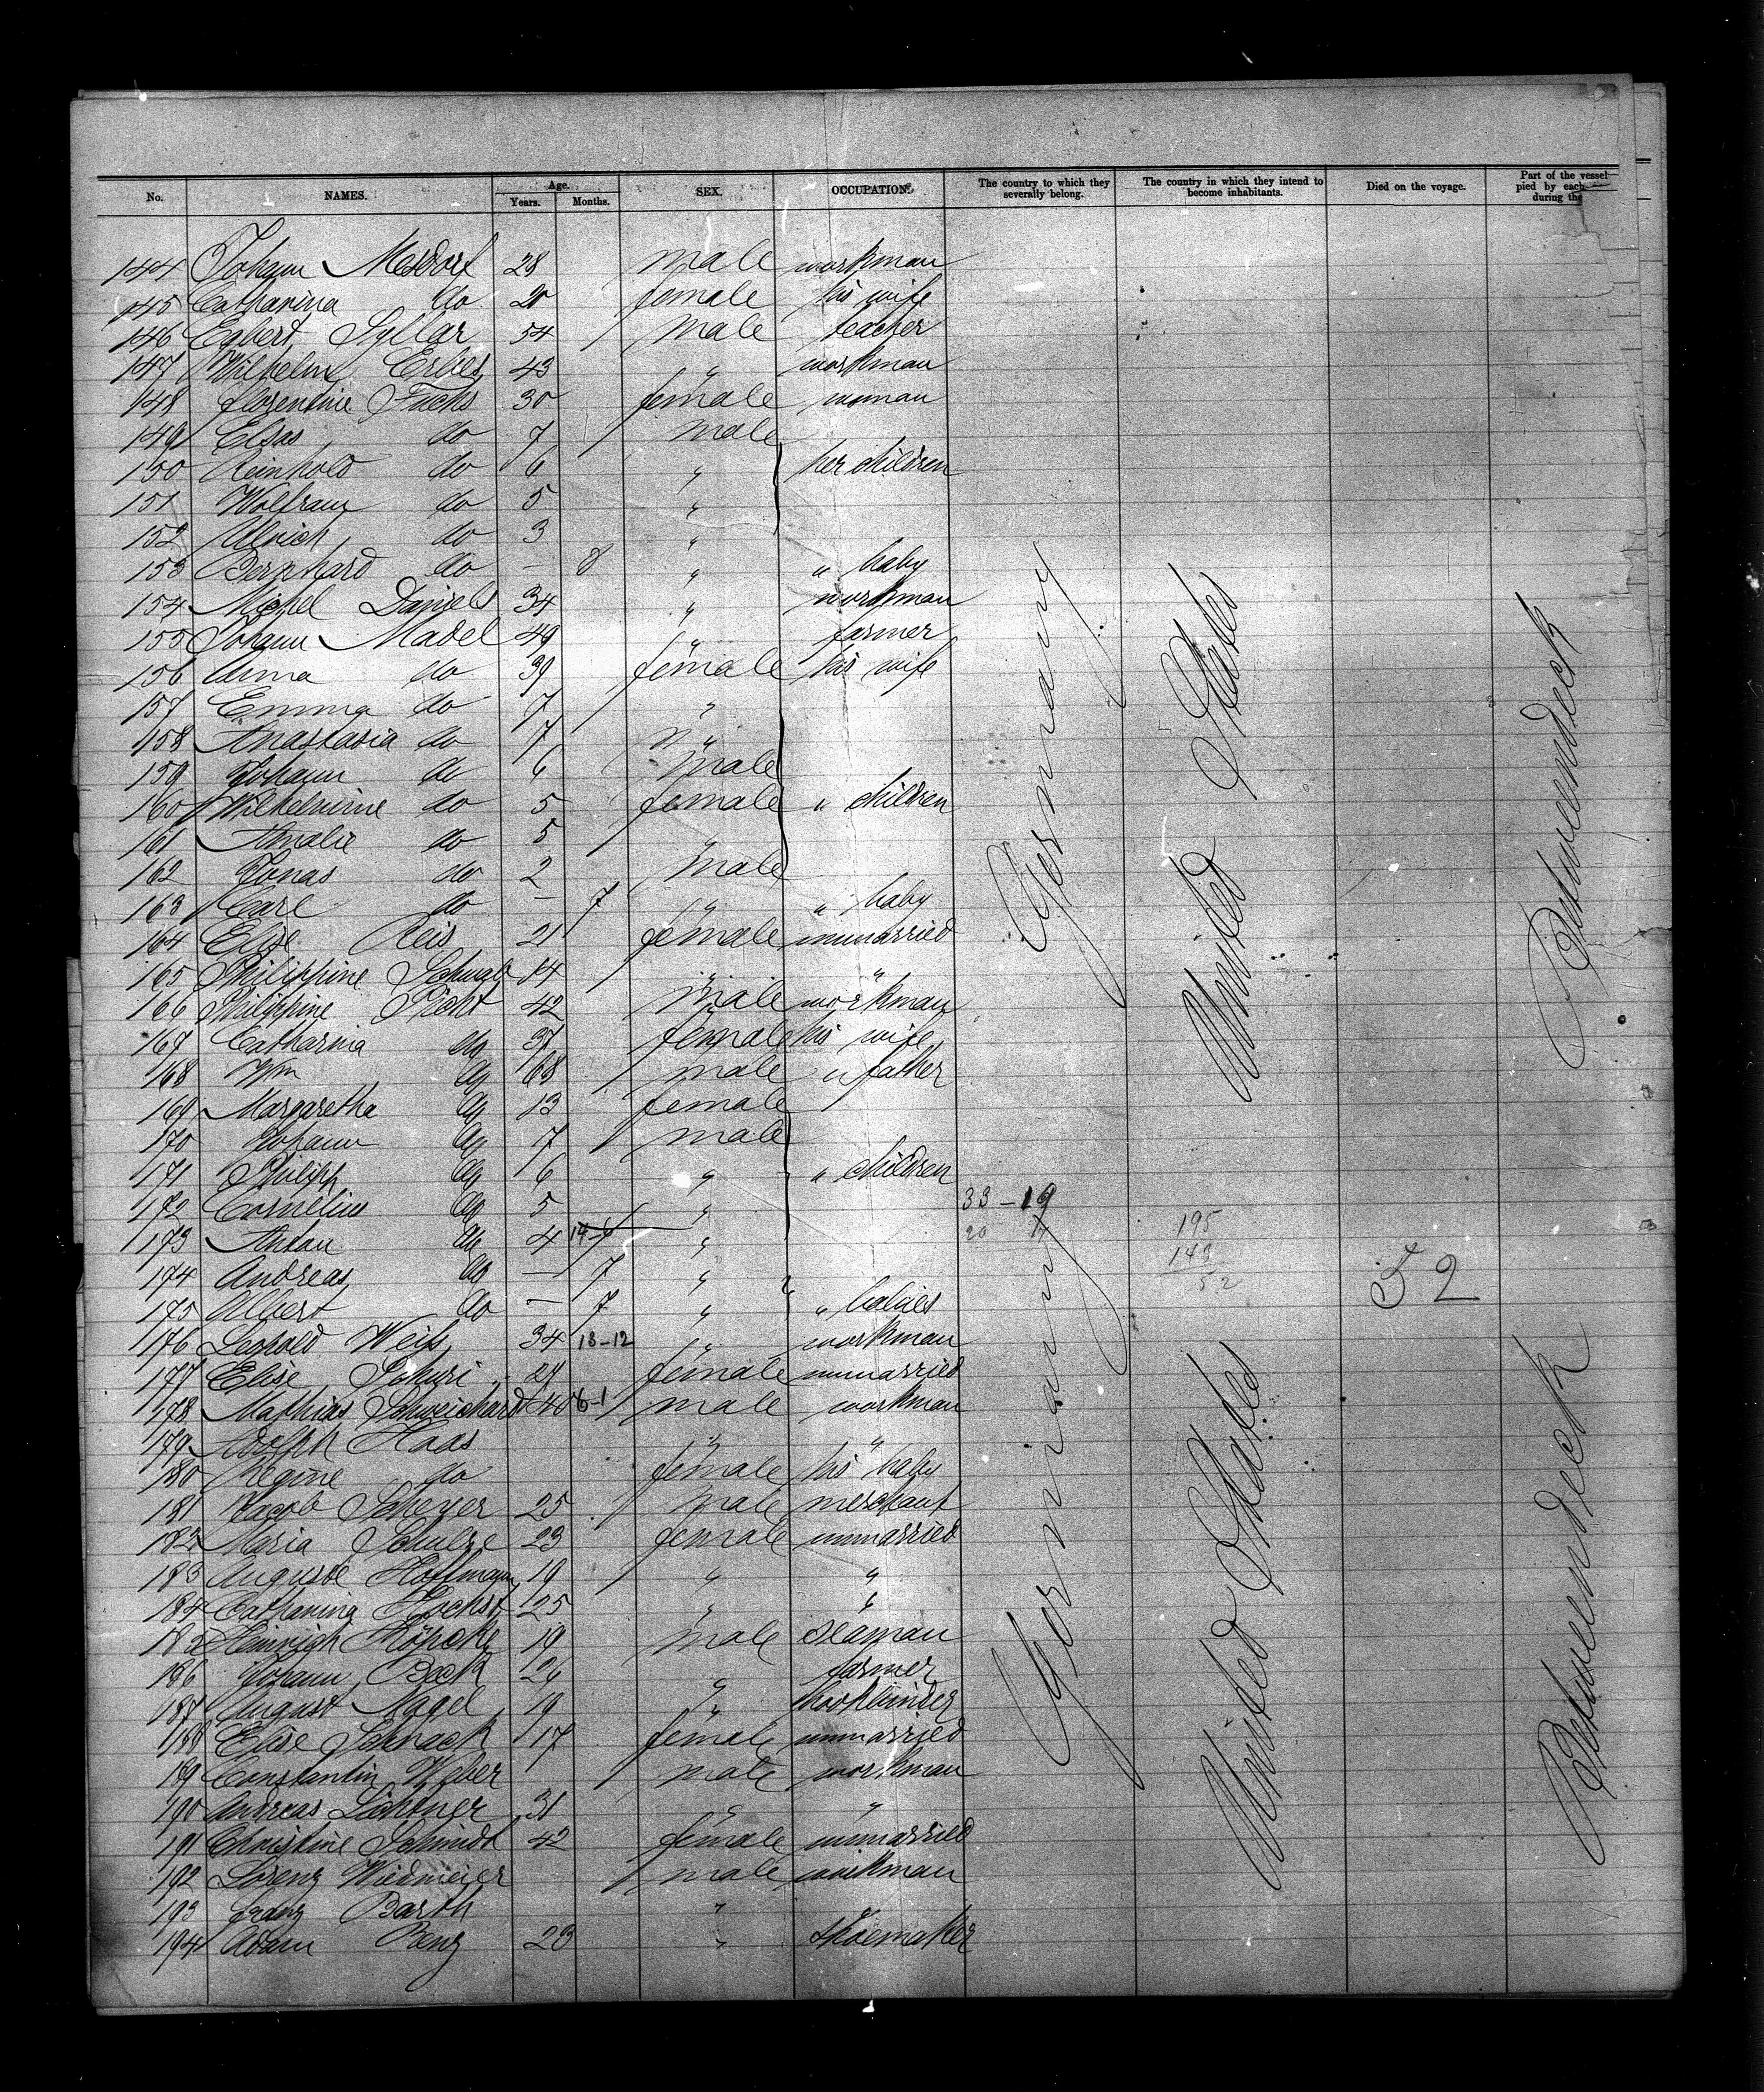 No. NAMES. Age. Years. Months. SEX. OCCUPATION. The country to which they severally belong. The country in which they intend to become inhabitants. Died on the voyage. Part of the vessel pied by each during the
144 Johann Mesdorf 28 male workman
145 Catharina do 20 female his wife
146 Egbert Syllar 54 male teacher
147 Wilhelm Erbes 43 " workman
148 Florentine Fuchs 30 female woman
149 Elsas do 7 male
150 Reinhold do 6 " her children
151 Wolfram do 5 "
152 Ulrich do 3 "
153 Bernhard do - 8 " " baby
154 Michel Daniels 34 " workman
155 Johann Madel 49 " farmer
156 Anna do 39 female his wife
157 Emma do 7 "
158 Anastasia do 7 "
159 Johann do 6 male
160 Wilhelmine do 5 female " children
161 Amalie do 5 "
162 Jonas do 2 male
163 Carl do - 7 " " baby
164 Elise Reis 21 female unmarried
165 Philippine Schwab 14 " "
166 Philippine Picht 42 male workman
167 Catharina do 37 female his wife
168 Wm do 68 male " father
169 Margaretha do 13 female
170 Johann do 7 male
171 Philipp do 6 " " children
172 Cornelius do 5 " 33-19
173 Anton do 4 " 20 195
174 Andreas do - 7 " 143
175 Albert do - 7 " " babies 52 52
176 Leopold Weiss 34 13-12 " workman
177 Elise Schuri 27 female unmarried
178 Mathias Schweichard 40 6-1 male workman
179 Adolph Haas " "
180 Regine do female his baby
181 Jacob Scheyer 25 male merchant
182 Maria Schulze 23 female unmarried
183 Auguste Hoffmann 19 " "
184 Catharina Hochst 25 " "
185 Heinrich Köpcke 19 male seaman
186 Johann Beck 26 " farmer
187 August Nagel 19 " bookbinder
188 Elise Schnack 17 female unmarried
189 Constantin Weber male workman
190 Andreas Lichtner 31 " "
191 Christine Schmidt 42 female unmarried
192 Lorenz Wiedmeier male workman
193 Franz Barth " "
194 Adam Benz 23 " shoemaker
Germany
United States
Betweendeck
Germany
United States
Betweendeck